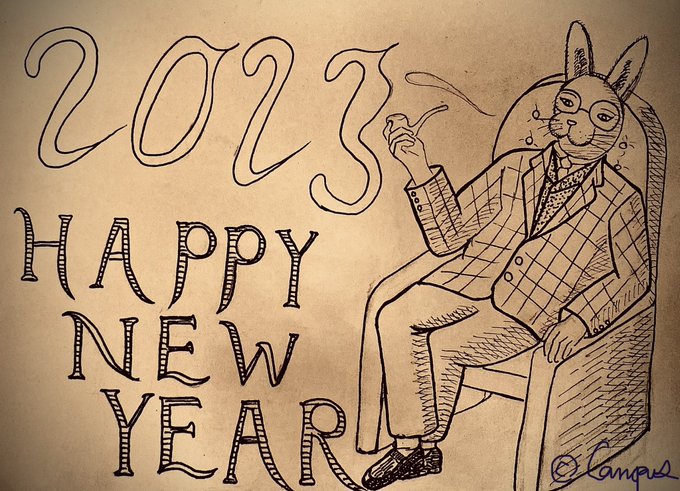 2023
HAPPY
NEW
YEAR
©